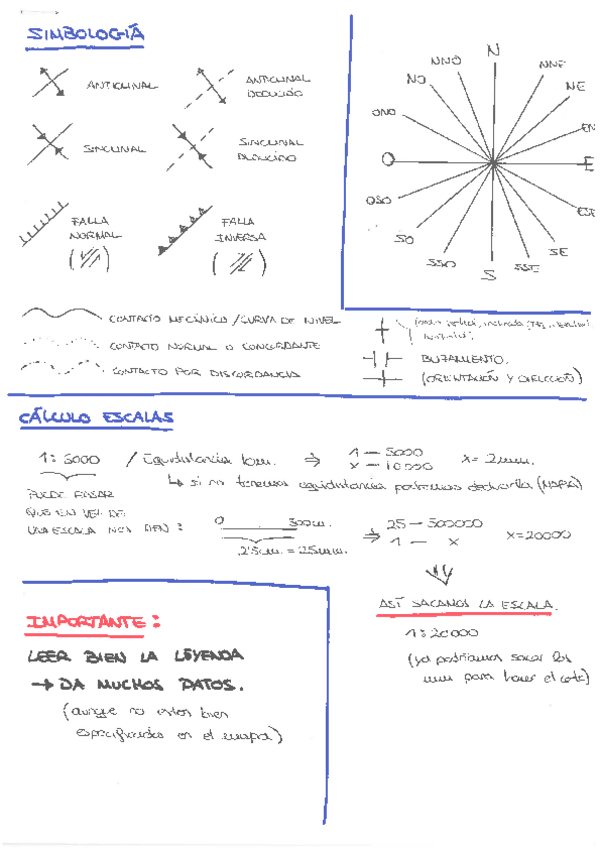 SIMBOLOGÍA
ANTICLINAL
ANTICLINAL
DEDUCIDO
SINCLINAL
SINCLINAL
DEDUCIDO
FALLA
NORMAL
FALLA
INVERSA
N
NNO
NNE
NO
NE
ONO
EN
O
E
OSO
ESE
SO
SE
SSO
SSE
S
CONTACTO MECÁNICO / CURVA DE NIVEL
CONTACTO NORMAL O CONCORDANTE
CONTACTO POR DISCORDANCIA
BUZAMIENTO.
(ORIENTACIÓN Y DIRECCIÓN)
CÁLCULO ESCALAS
1:5000 / Equidistancia 10m. ⇒ 1 — 5000
x — 10000
x = 2mm.
↳ si no tenemos equidistancia podremos deducirla (MAPA)
PUEDE PASAR
QUE EN VEZ DE
UNA ESCALA NOS DEN :
0 500m.
2'5cm. = 25mm.
⇒ 25 — 500000
1 — x
x=20000
ASÍ SACAMOS LA ESCALA.
1:20000
(ya podríamos sacar los
mm para hacer el corte)
IMPORTANTE:
LEER BIEN LA LEYENDA
→ DA MUCHOS DATOS.
(aunque no estén bien
especificados en el mapa)